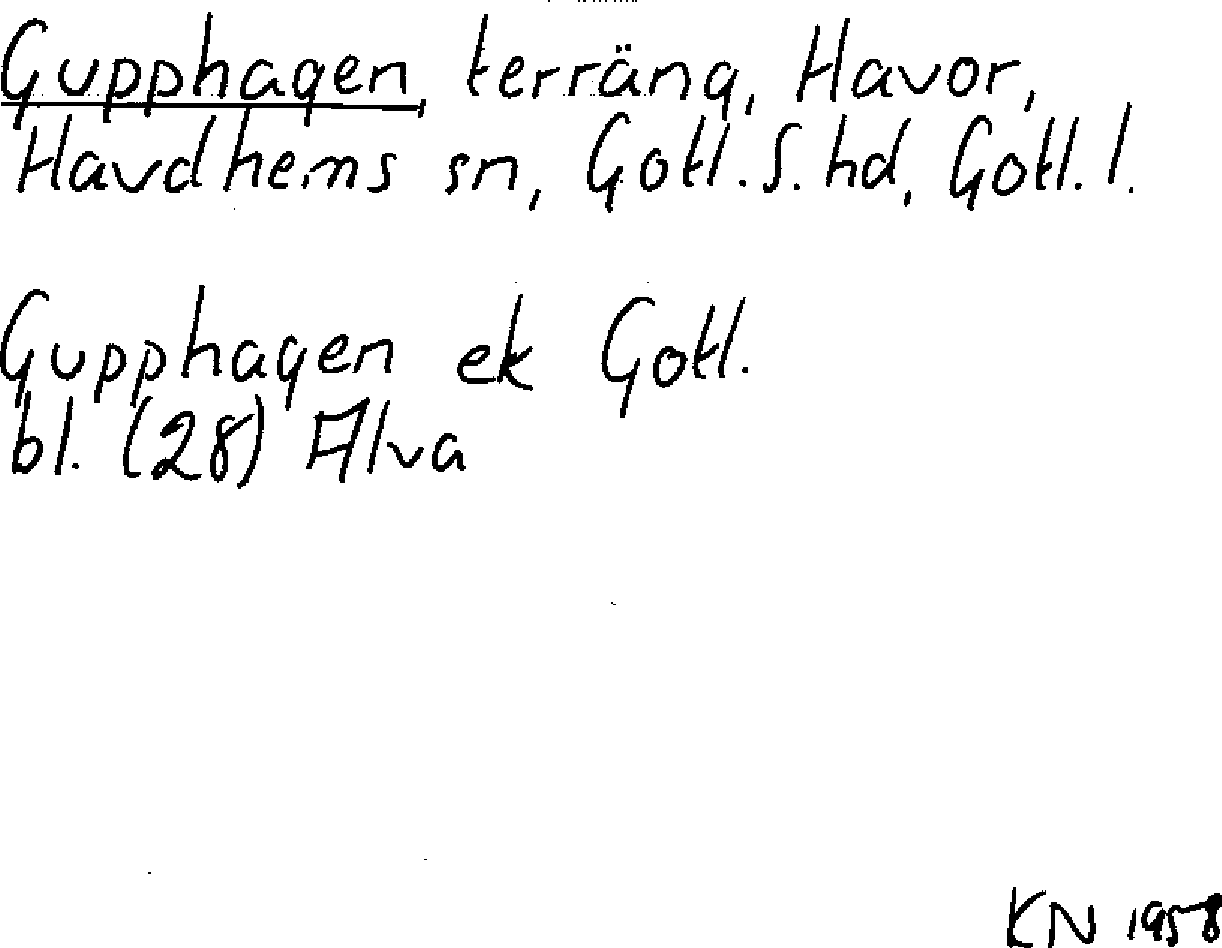 Gupphagen, terräng, Havor,
Havdhems sn, Gotl. S. hd, Gotl. l.
Gupphagen ek Gotl.
bl. (28) Alva
KN 1958